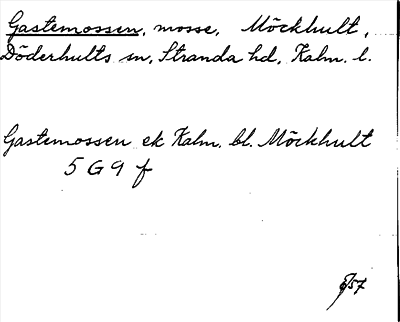 Gastemossen, mosse, Möckhult,
Döderhults sn, Stranda hd, Kalm. l.
Gastemossen ek Kalm. bl. Möckhult
5 G 9 f